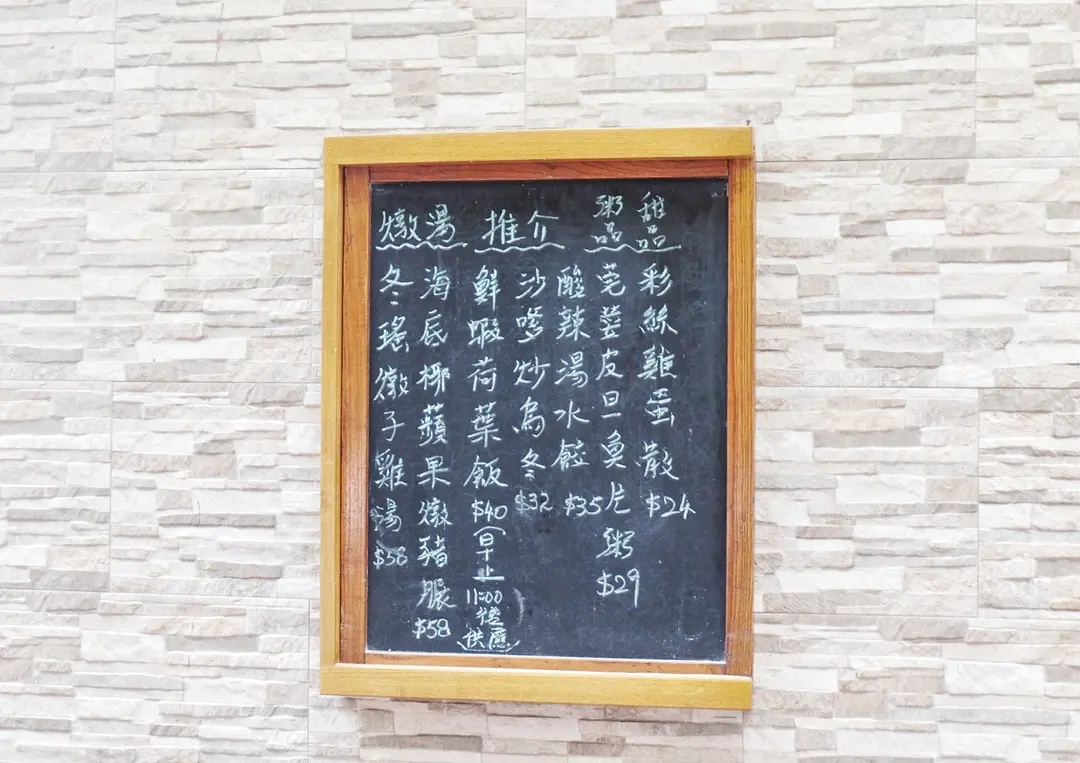 燉湯
冬瑤燉子雞湯 $58
海底椰蘋果燉豬脤 $58
推介
鮮蝦荷葉飯 $40
(早上
11:00
後
供應)
沙嗲炒烏冬 $32
酸辣湯水餃 $35
粥品
芫荽皮旦魚片粥 $29
甜品
彩絲雞蛋散 $24